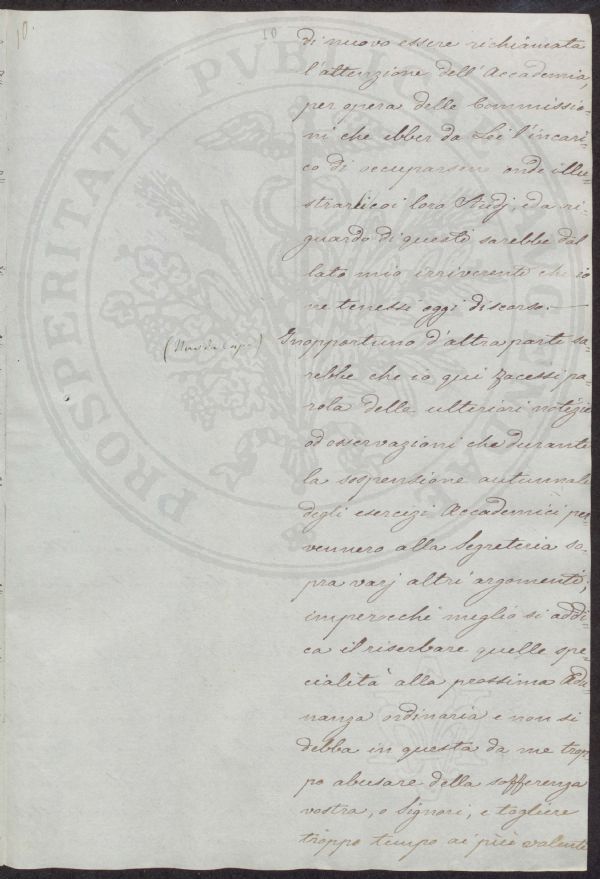 10.
10
di nuovo essere richiamata
l'attenzione dell'Accademia,
per opera delle Commissio-
ni che ebber da Lei l'incari-
co di occuparsene onde illu-
strarli coi loro Studj, ed a ri-
guardo di questi sarebbe dal
lato mio irriverente che io
ne tenessi oggi discorso.—
Inopportuno d'altra parte sa-
rebbe che io qui facessi pa-
rola delle ulteriori notizie
od osservazioni che durante
la sospensione autunnale
degli esercizi Accademici per-
vennero alla Segreteria so-
pra varj altri argomenti;
imperocchè meglio si addi-
ca il riserbare quelle spe-
cialità alla prossima Adu-
nanza ordinaria e non si
debba in questa da me trop-
po abusare della sofferenza
vostra, o Signori, e togliere
troppo tempo ai più valenti
PROSPERITATI PVBLICAE AVGENDAE